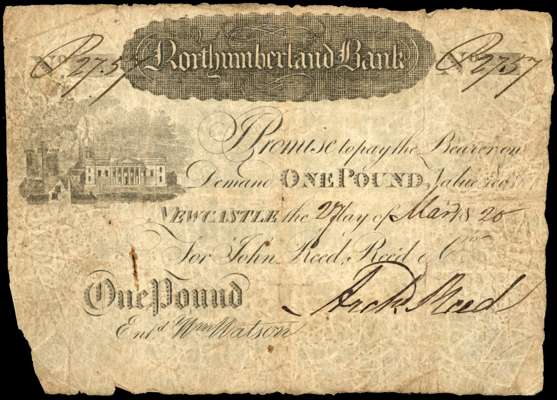 P2757 Northumberland Bank No P2757
I Promise to pay the Bearer on
Demand ONE POUND, Value recd
NEWCASTLE the 27 day of March 1820
For John Reed, Reed & Co
One Pound Archd Reed
Entd Wm Watson